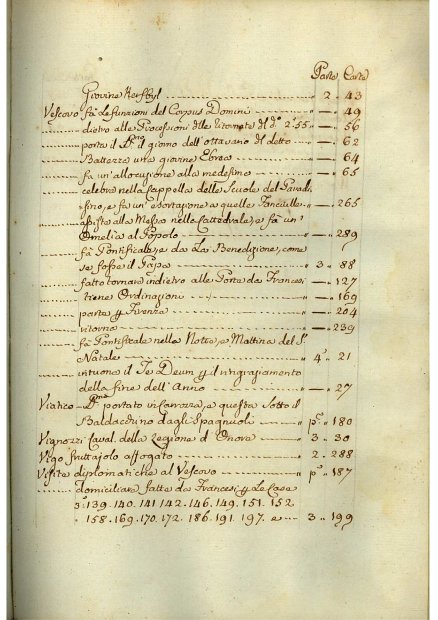 Parte Carte
Giovine 2. 43
Vescovo fà Le funzioni del Corpus Domini — 49
dietro alle Processioni dlle 2° 55 — 56
porta il giorno dell'ottavario di detto — 62
Battezza una giovine Ebrea — 64
fa un'allocuzione alla medesima — 65
celebra nella Cappella delle Scuole del Paradi
sino, e fa un'esortazione a quelle — 265
assiste alla Messa nella Cattedrale, e fà un'
Omelia al Popolo — 289
fà Pontificale, e da La Benedizione, come
se fosse il Papa 3. 88
fatto tornare indietro alla Porta da Francesi — 127
tiene Ordinazioni — 169
parte Firenze — 204
ritorna — 239
fa Pontificale nella Notte, e Mattina del S.
Natale 4. 21
intuona il Te Deum il ringraziamento
della fine dell'Anno — 27
Viatico portato in Carrozza, e questa sotto il
Baldacchino dagli Spagnuoli pᵃ 180
Vignozzi Caval. della Legione d'Onore 3. 30
Vigo fruttajolo affogato 2. 288
Visite diplomatiche al Vescovo pᵃ 187
domiciliari fatte da Francesi Le Case
3. 139. 140. 141. 142. 146. 149. 151. 152.
158. 169. 170. 172. 186. 191. 197. e 3. 199